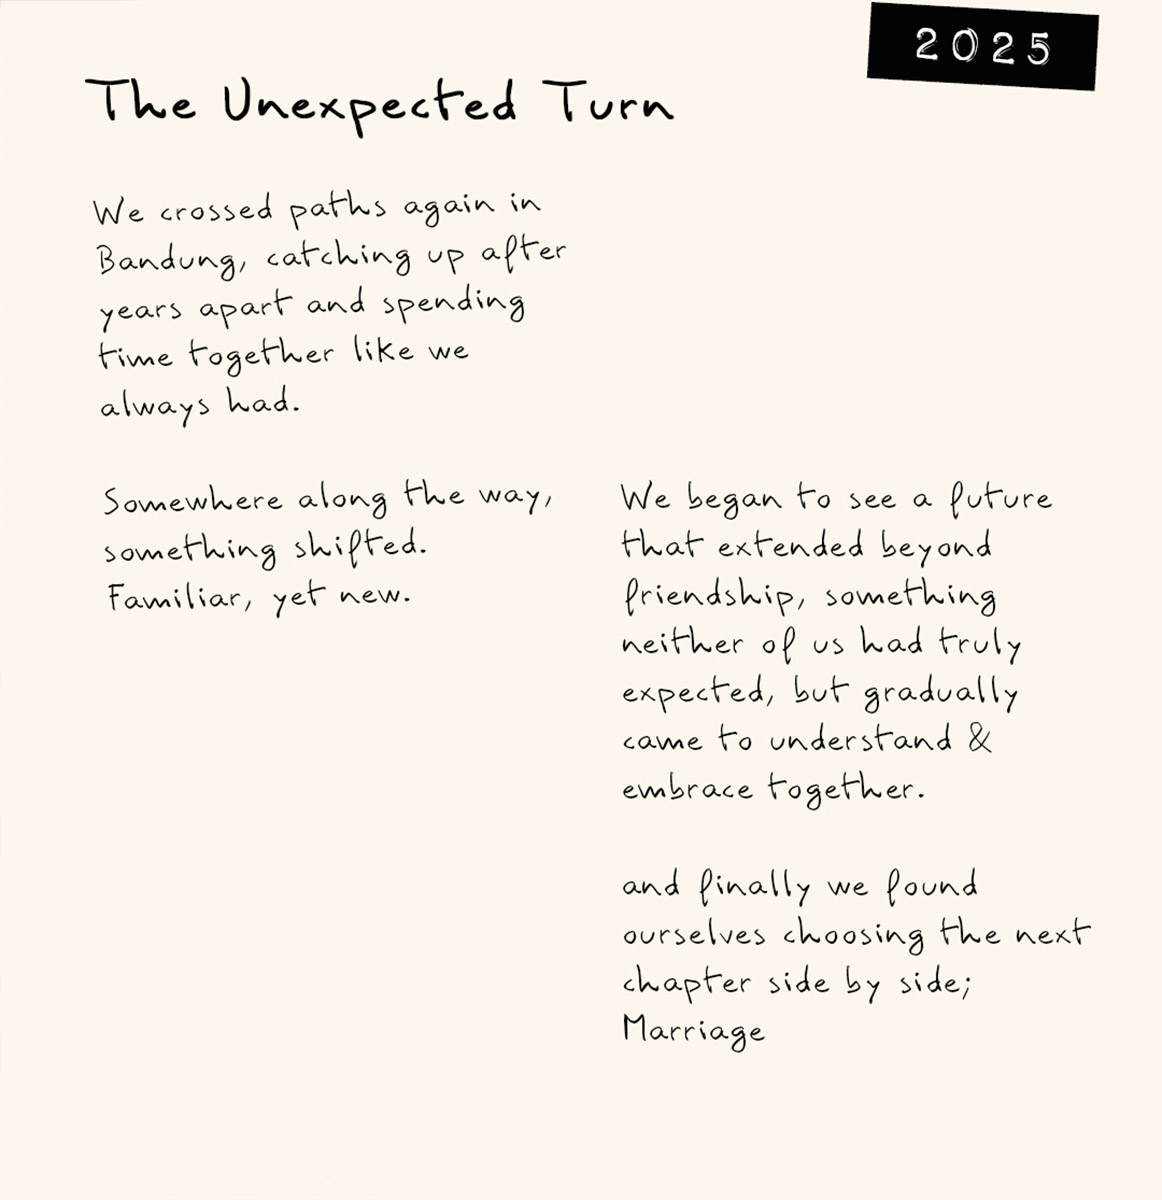 2025
The Unexpected Turn
We crossed paths again in
Bandung, catching up after
years apart and spending
time together like we
always had.
Somewhere along the way,
something shifted.
Familiar, yet new.
We began to see a future
that extended beyond
friendship, something
neither of us had truly
expected, but gradually
came to understand &
embrace together.
and finally we found
ourselves choosing the next
chapter side by side;
Marriage